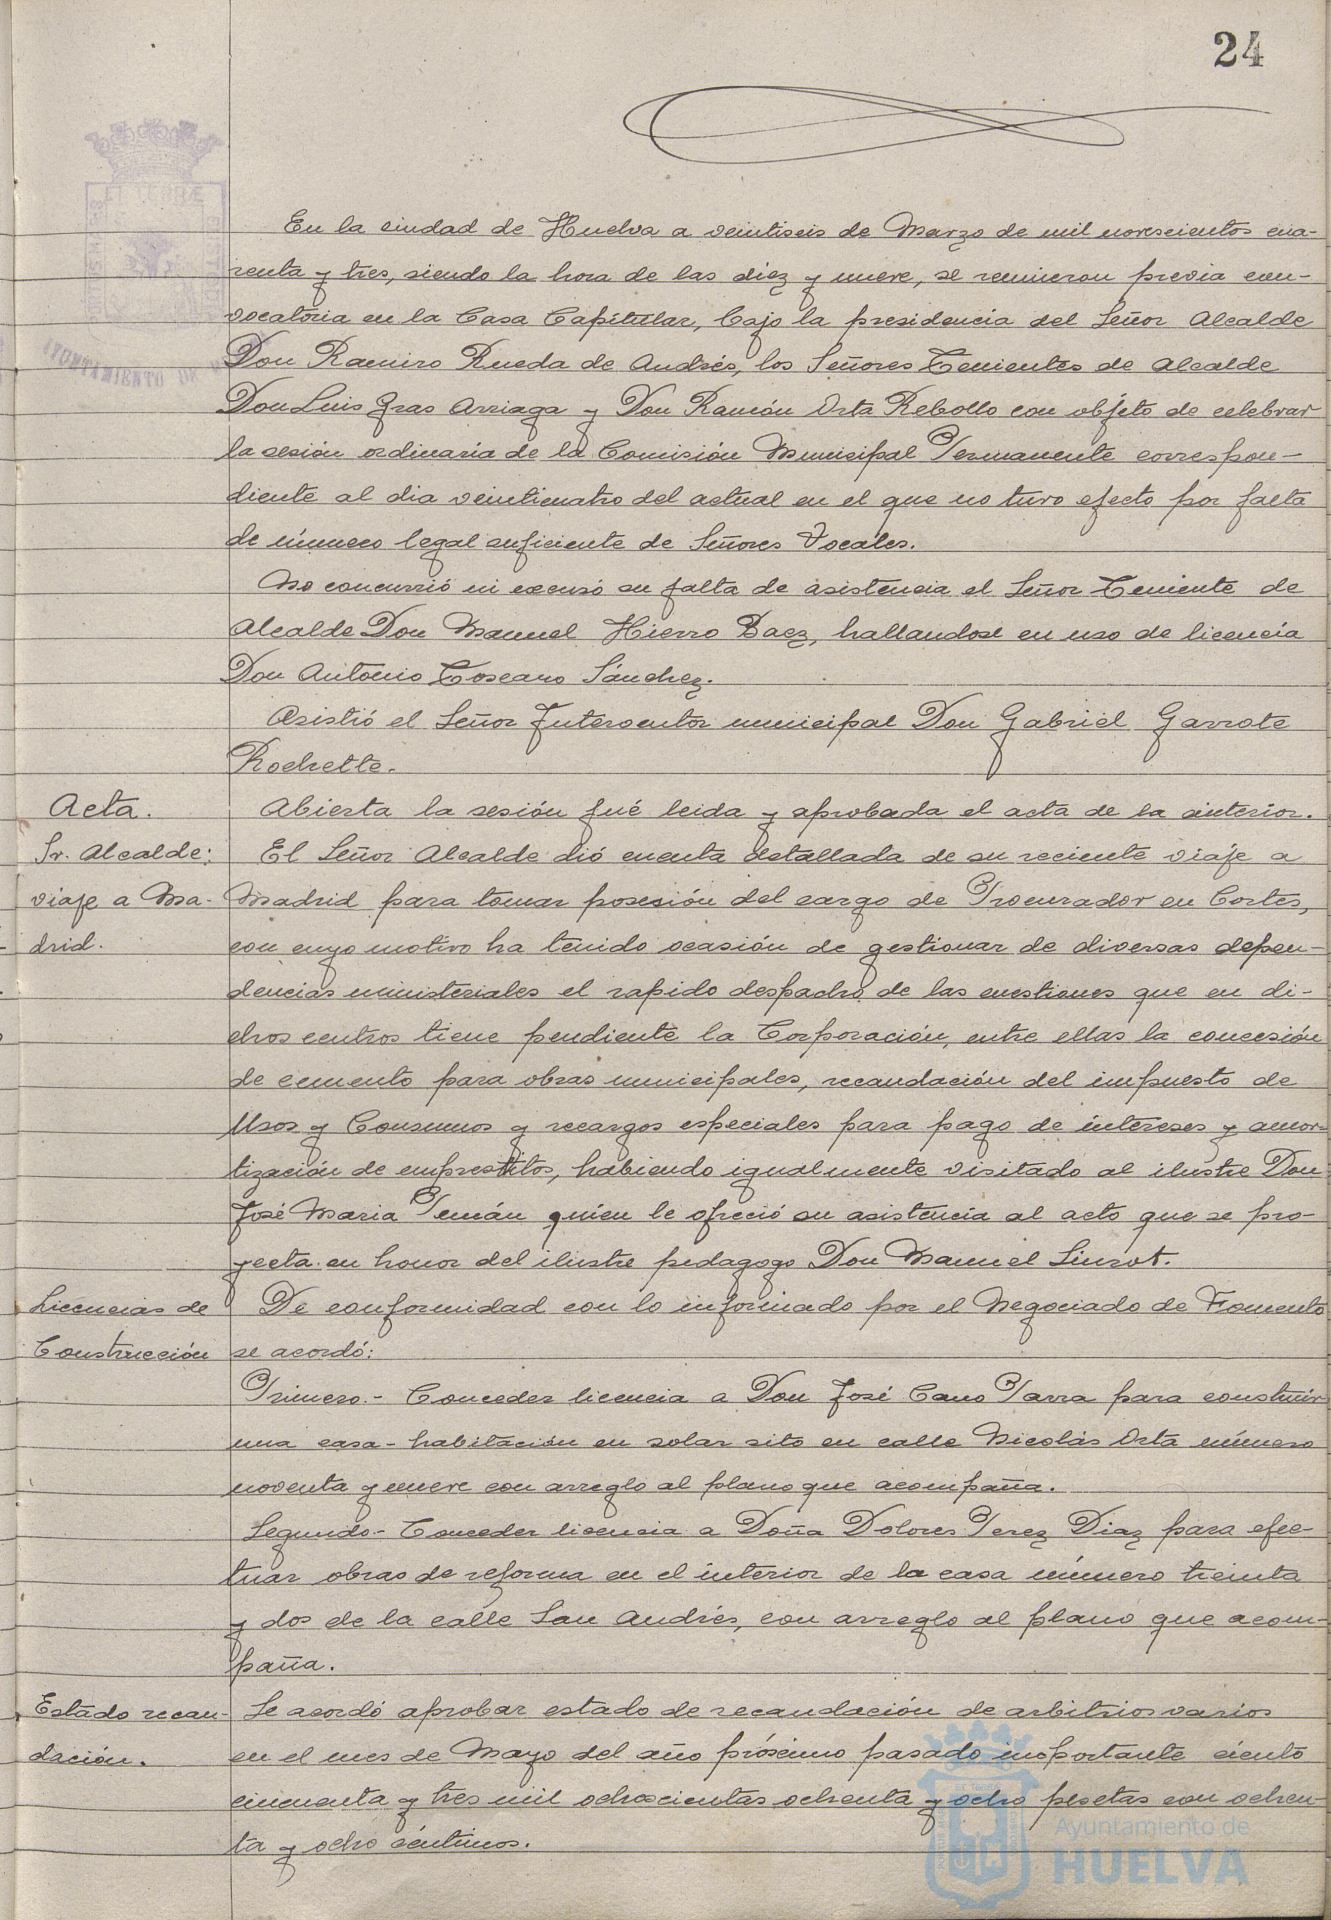 24
En la ciudad de Huelva a veintiseis de Marzo de mil novescientos cua-
renta y tres, siendo la hora de las diez y nueve, se reunieron previa con-
vocatoria en la Casa Capitular, bajo la presidencia del Señor Alcalde
Don Ramiro Rueda de Andrés, los Señores Tenientes de Alcalde
Don Luis Gras Arriaga y Don Ramón Orta Rebollo con objeto de celebrar
la sesión ordinaria de la Comisión Municipal Permanente correspon-
diente al dia veinticuatro del actual en el que no tuvo efecto por falta
de número legal suficiente de Señores Vocales.
No concurrió ni excusó su falta de asistencia el Señor Teniente de
Alcalde Don Manuel Hierro Baez, hallandose en uso de licencia
Don Antonio Toscano Sánchez.
Asistió el Señor Interventor municipal Don Gabriel Garrote
Rochette.
Acta.
Abierta la sesión fué leida y aprobada el acta de la anterior.
Sr. Alcalde:
viaje a Ma-
drid.
El Señor Alcalde dió cuenta detallada de su reciente viaje a
Madrid para tomar posesión del cargo de Procurador en Cortes,
con cuyo motivo ha tenido ocasión de gestionar de diversas depen-
dencias ministeriales el rapido despacho de las cuestiones que en di-
chos centros tiene pendiente la Corporación, entre ellas la concesión
de cemento para obras municipales, recaudación del impuesto de
Usos y Consumos y recargos especiales para pago de intereses y amor-
tización de emprestitos, habiendo igualmente visitado al ilustre Don
José Maria Pemán quien le ofreció su asistencia al acto que se pro-
yecta en honor del ilustre pedagogo Don Manuel Siurot.
Licencias de
Construcción
De conformidad con lo informado por el Negociado de Fomento
se acordó:
Primero.- Conceder licencia a Don José Cano Parra para construir
una casa-habitación en solar sito en calle Nicolás Orta número
noventa y nueve con arreglo al plano que acompaña.
Segundo- Conceder licencia a Doña Dolores Perez Diaz para efec-
tuar obras de reforma en el interior de la casa número treinta
y dos de la calle San Andrés, con arreglo al plano que acom-
paña.
Estado recau-
dación.
Se acordó aprobar estado de recaudación de arbitrios varios
en el mes de Mayo del año próximo pasado importante ciento
cincuenta y tres mil ochoscientas ochenta y ocho pesetas con ochen-
ta y ocho céntimos.
Ayuntamiento de
HUELVA